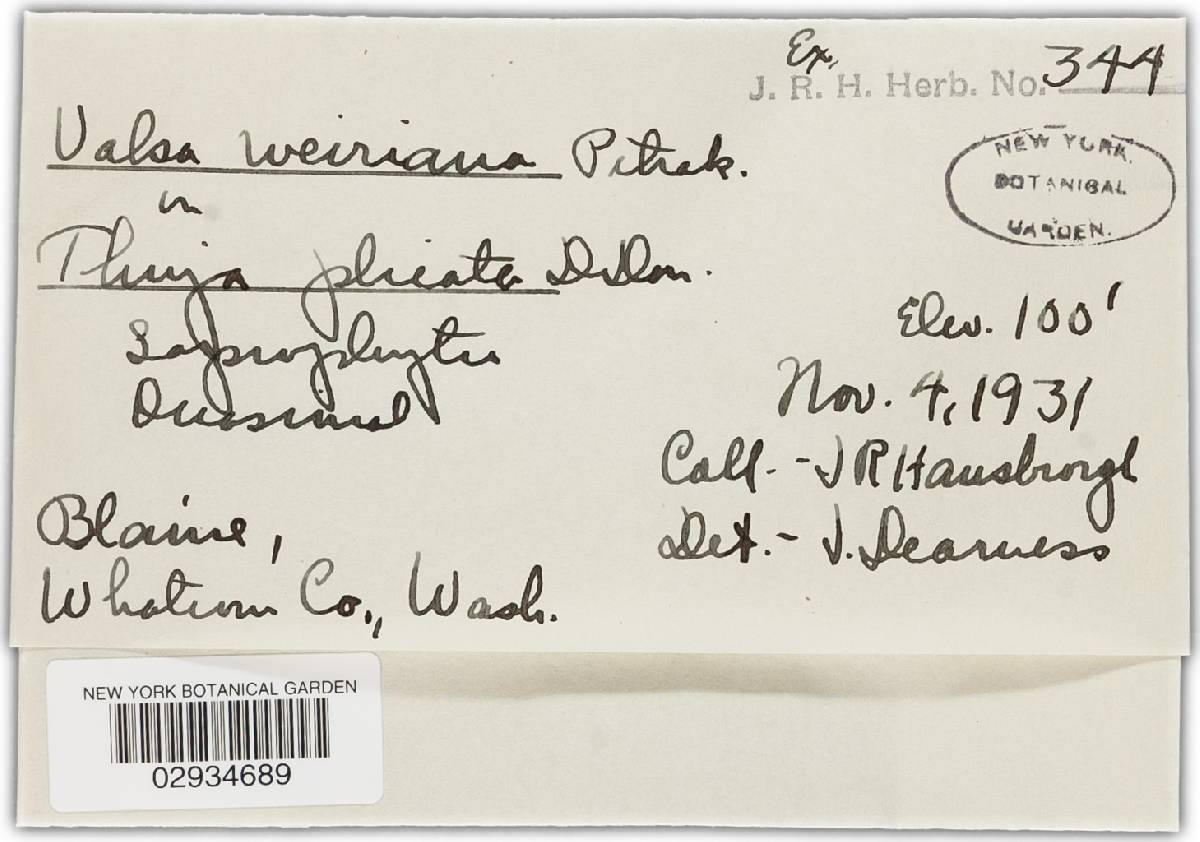 Ex.
J. R. H. Herb. No. 344
Valsa weiriana Petrak.
NEW YORK
BOTANICAL
GARDEN.
on
Thuja plicata D Don.
Elev. 100'
Saprophytic
Nov. 4, 1931
Coll. - J R Hansbrough
Blaine,
Det. - J. Dearness
Whatcom Co., Wash.
NEW YORK BOTANICAL GARDEN
02934689